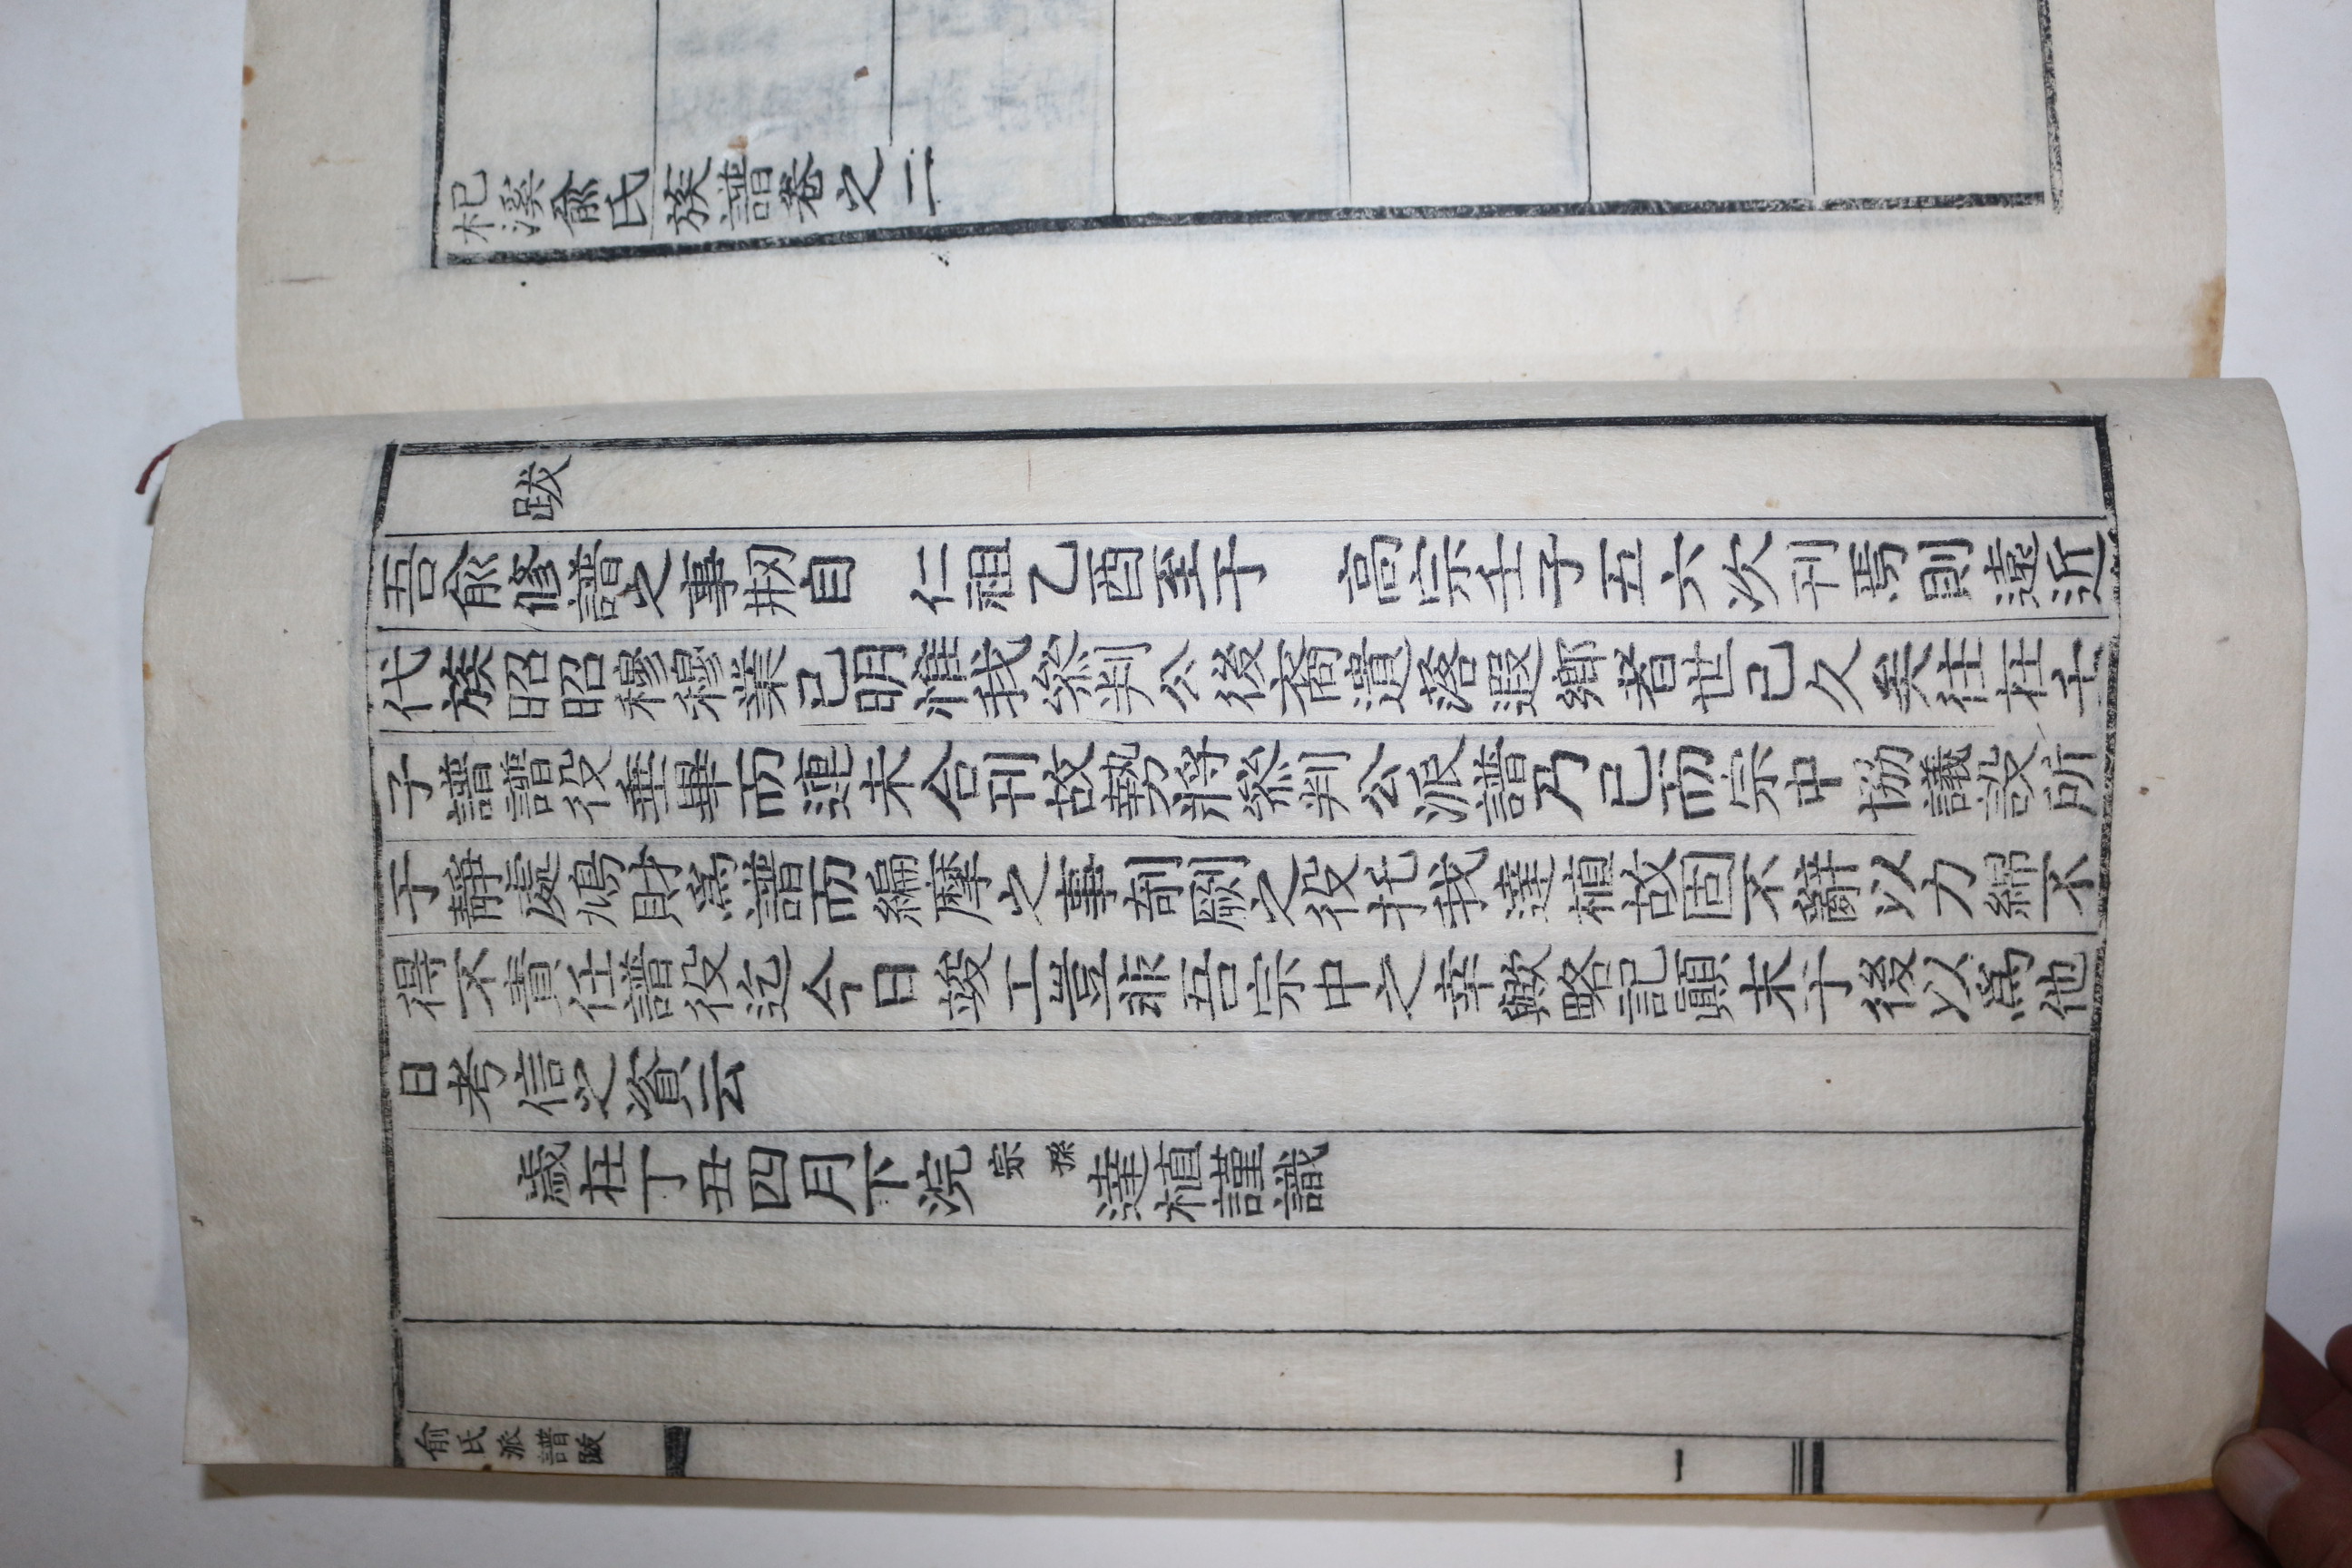 杞溪兪氏族譜卷之二
跋
吾兪修譜之事刱自　仁祖乙酉至于　高宗壬子五六次刊焉則遠近
代族昭昭穆穆業已明惟我叅判公後裔遺落遐鄕者世已久矣往在壬
子譜譜役垂畢而運未合刊故勢將叅判公派譜乃已而宗中協議設所
于靜處鳩財爲譜而編摩之事剞劂之役托我達植故固不辭以力綿不
得不責任譜役迄今日竣工豈非吾宗中之幸歟略記顚末于後以爲他
日考信之資云
歲在丁丑四月下浣宗孫達植謹識
兪氏派譜跋
一